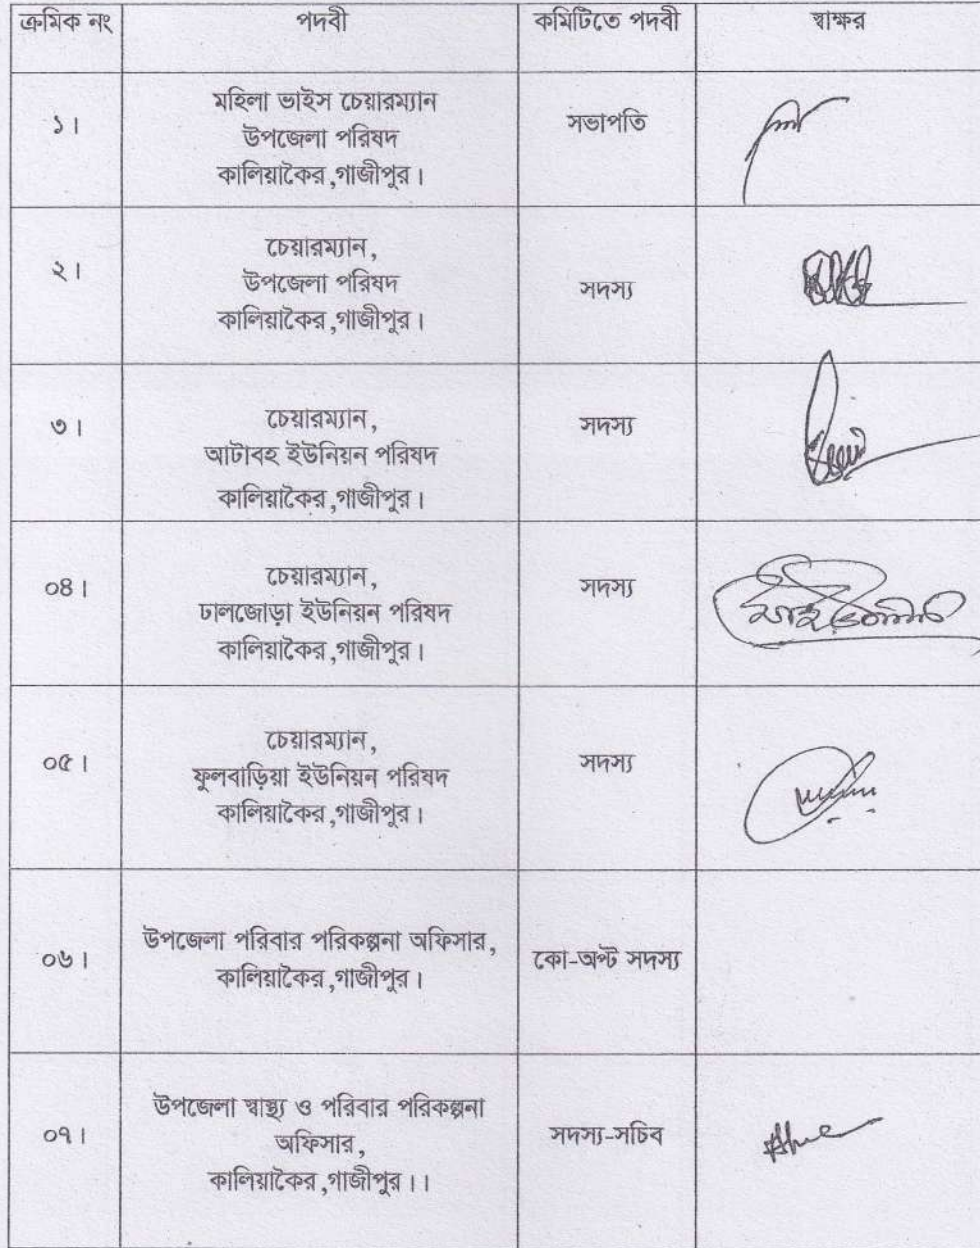 ক্রমিক নং পদবী কমিটিতে পদবী স্বাক্ষর
১। মহিলা ভাইস চেয়ারম্যান
উপজেলা পরিষদ
কালিয়াকৈর,গাজীপুর। সভাপতি
২। চেয়ারম্যান,
উপজেলা পরিষদ
কালিয়াকৈর,গাজীপুর। সদস্য
৩। চেয়ারম্যান,
আটাবহ ইউনিয়ন পরিষদ
কালিয়াকৈর,গাজীপুর। সদস্য
০৪। চেয়ারম্যান,
ঢালজোড়া ইউনিয়ন পরিষদ
কালিয়াকৈর,গাজীপুর। সদস্য
০৫। চেয়ারম্যান,
ফুলবাড়িয়া ইউনিয়ন পরিষদ
কালিয়াকৈর,গাজীপুর। সদস্য
০৬। উপজেলা পরিবার পরিকল্পনা অফিসার,
কালিয়াকৈর,গাজীপুর। কো-অপ্ট সদস্য
০৭। উপজেলা স্বাস্থ্য ও পরিবার পরিকল্পনা
অফিসার,
কালিয়াকৈর,গাজীপুর।। সদস্য-সচিব